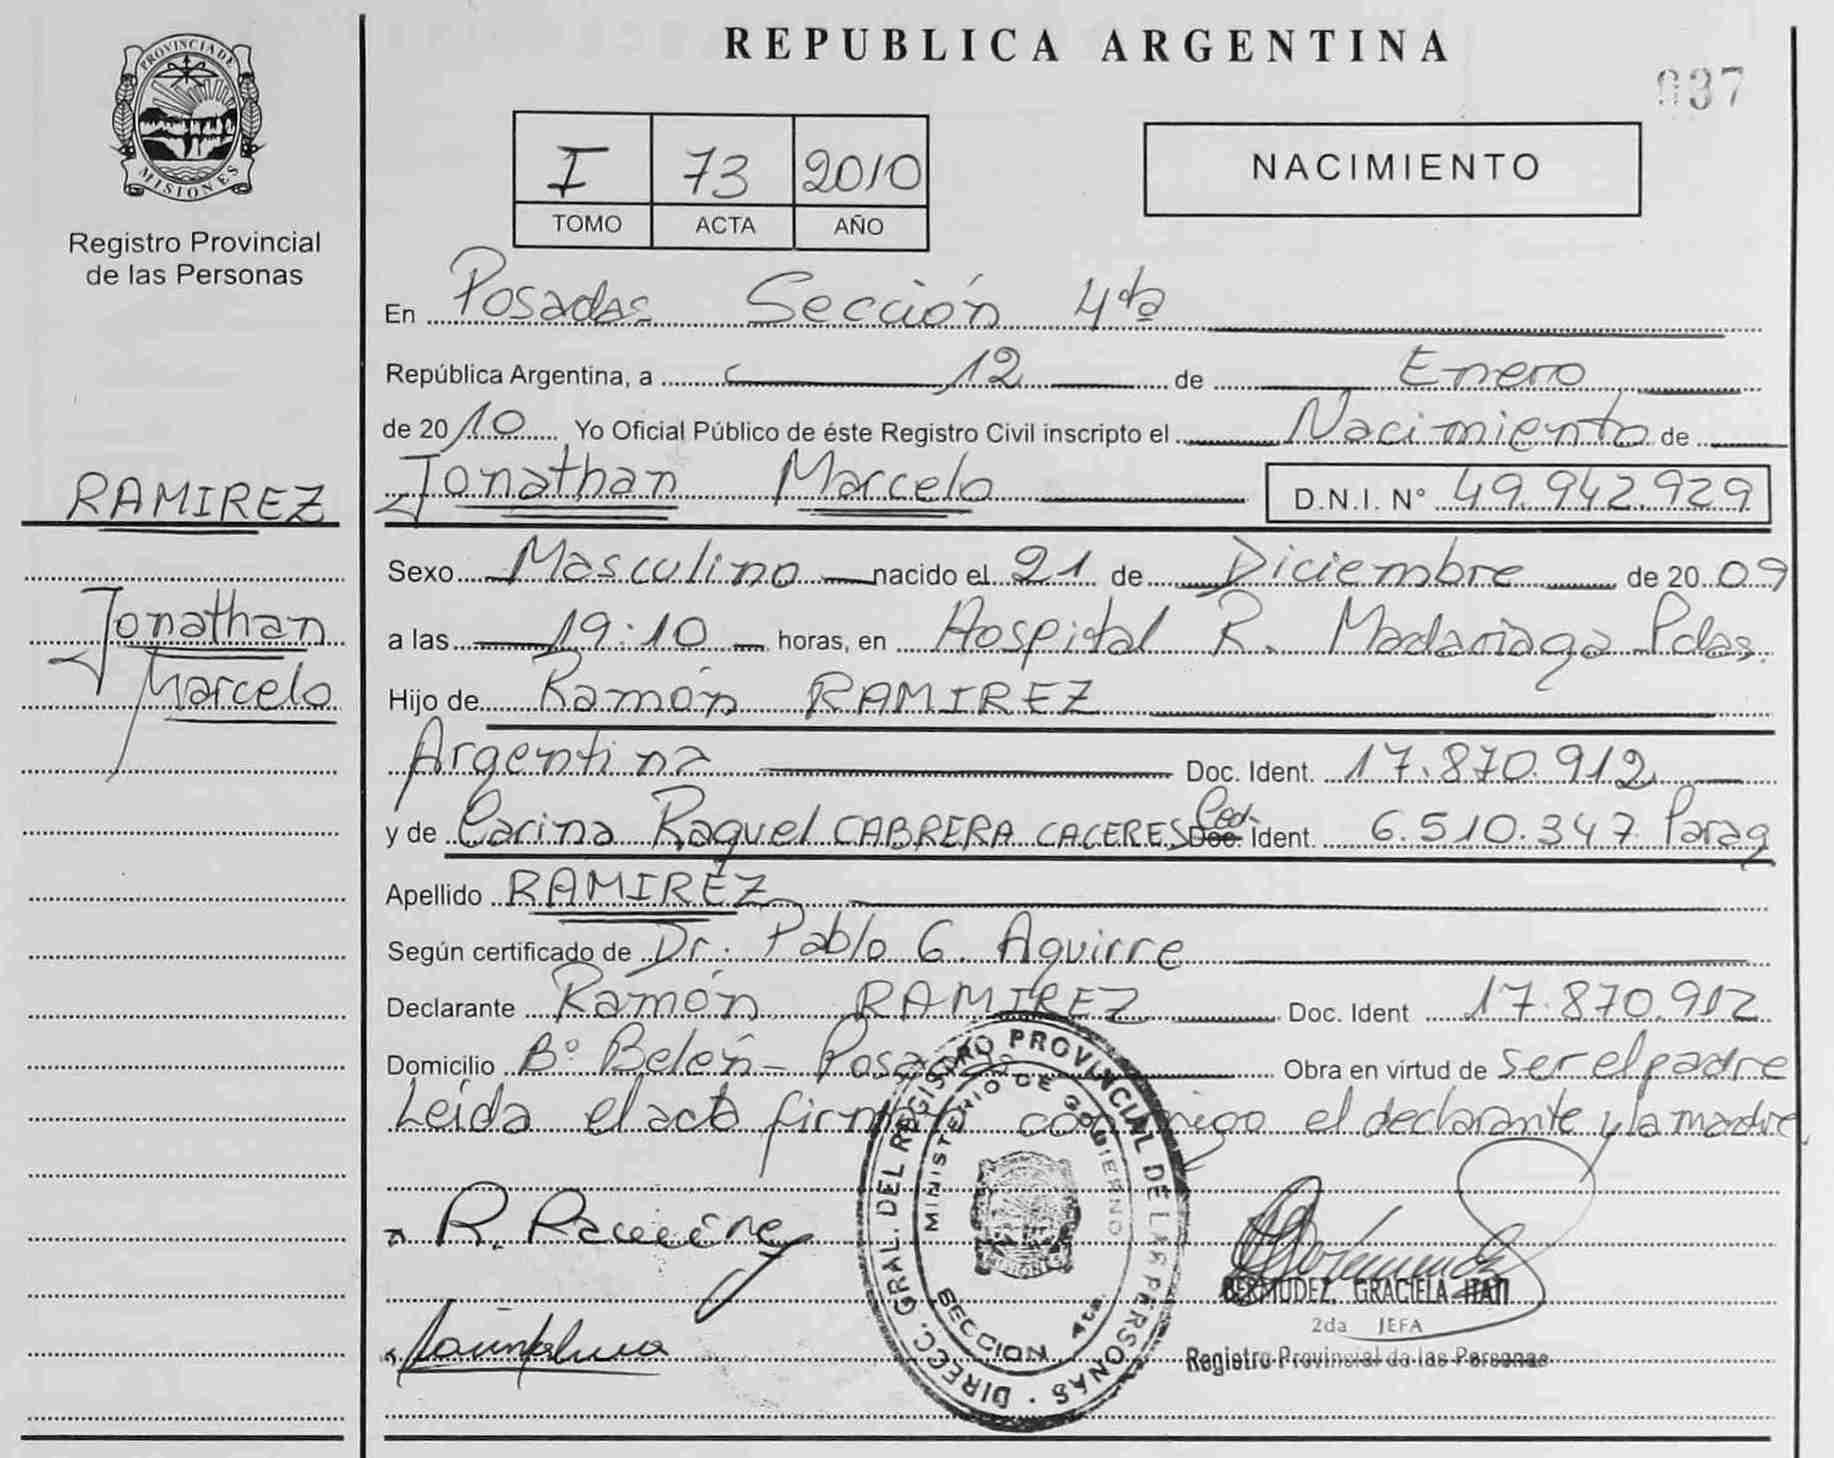 PROVINCIA DE
MISIONES
Registro Provincial
de las Personas
RAMIREZ
Jonathan
Marcelo
REPUBLICA ARGENTINA
037
I 73 2010
TOMO ACTA AÑO
NACIMIENTO
En Posadas Sección 4ta
República Argentina, a 12 de Enero
de 2010 Yo Oficial Público de éste Registro Civil inscripto el Nacimiento de
Jonathan Marcelo D.N.I. N° 49.942.929
Sexo Masculino nacido el 21 de Diciembre de 2009
a las 19:10 horas, en Hospital R. Madariaga Pdas.
Hijo de Ramón RAMIREZ
Argentina Doc. Ident. 17.870.912
y de Carina Raquel CABRERA CACERES Ced. Doc. Ident. 6.510.347 Parag
Apellido RAMIREZ
Según certificado de Dr. Pablo G. Aguirre
Declarante Ramón RAMIREZ Doc. Ident 17.870.912
Domicilio B° Belén - Posadas Obra en virtud de ser el padre
Leída el acta firman conmigo el declarante y la madre.
R. Ramirez
DIRECC. GRAL. DEL REGISTRO PROVINCIAL DE LAS PERSONAS
MINISTERIO DE GOBIERNO
MISIONES
SECCION 4ta.
BERMUDEZ, GRACIELA ITATI
2da JEFA
Registro Provincial de las Personas